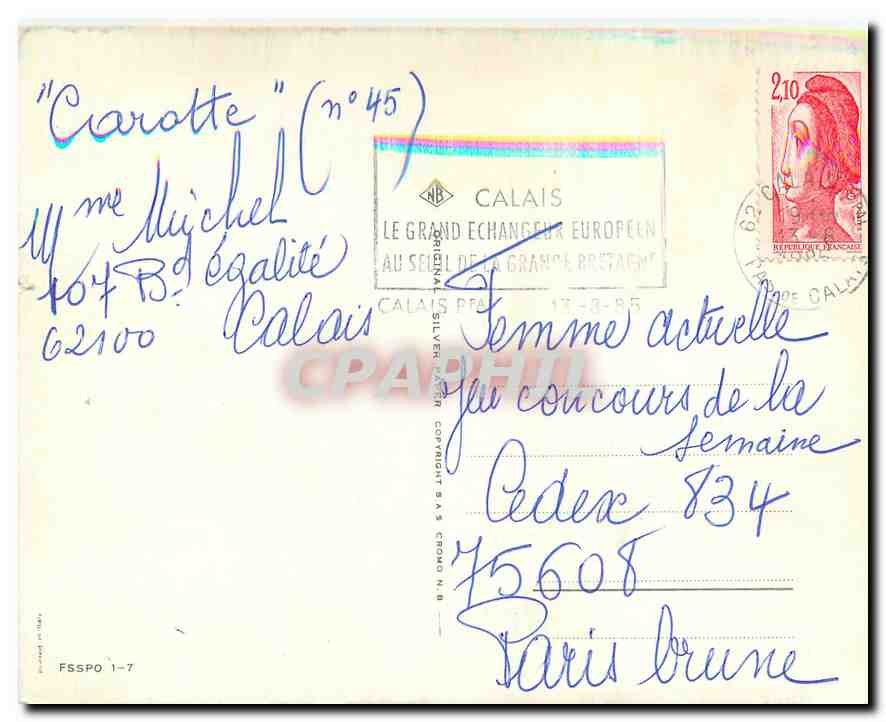 "Carotte" (n° 45)
Mme Michel
107 Bd égalité
62100 Calais
NB CALAIS
LE GRAND ECHANGEUR EUROPEEN
AU SEUIL DE LA GRANDE BRETAGNE
CALAIS PPAL 13-8-85
2,10
RÉPUBLIQUE FRANÇAISE
62 CALAIS
PAS DE CALAIS
ORIGINAL SILVER PAPER COPYRIGHT S.A.S CROMO N.B
CPAPHIL
Femme actuelle
Jeu concours de la
semaine
Cedex 834
75608
Paris brune
FSSPO 1-7